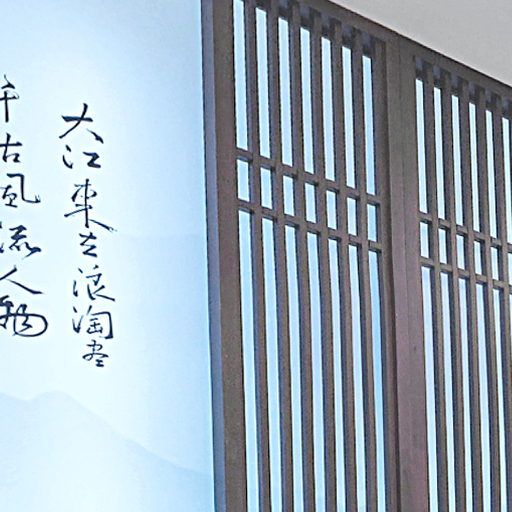 大江東去浪淘盡
千古風流人物